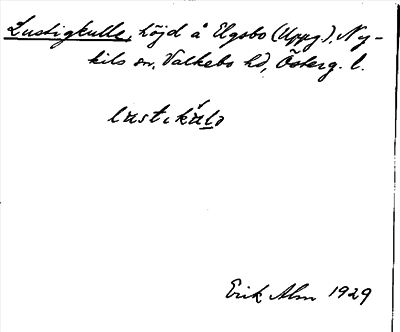 Lustigkulle, höjd å Elgsbo (Uppg.), Ny-
kils sn, Valkebo hd, Österg. l.
lustikúlɔ
Erik Alm 1929